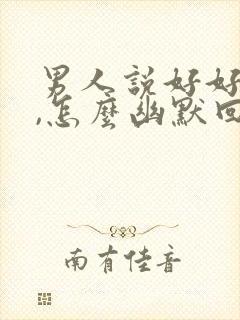 男人說好好
,怎麼幽默回
南有佳音